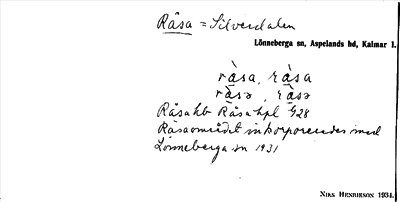 Råsa = Silverdalen
Lönneberga sn, Aspelands hd, Kalmar l.
ràsa, ràsa
ràsə, ràsə
Råsa hb Råsa hpl G28
Råsaområdet inkorporerades med
Lönneberga sn 1931
NILS HENRIKSON 1934.